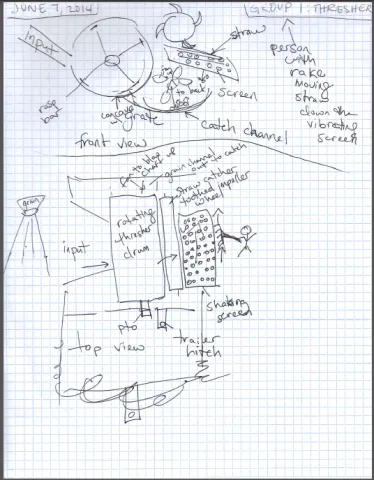 JUNE 7, 2014
GROUP 1: THRESHER
Input
straw
person
with
rake
moving
straw
down the
vibrating
screen
to back
screen
rasp
bar
concave
grate
catch channel
front view
fan to blow up
chaff
grain channel
out to catch
straw catcher
toothed impeller
wheel
rotating
thresher
drum
input
shaking
screen
pto
top view
trailer
hitch